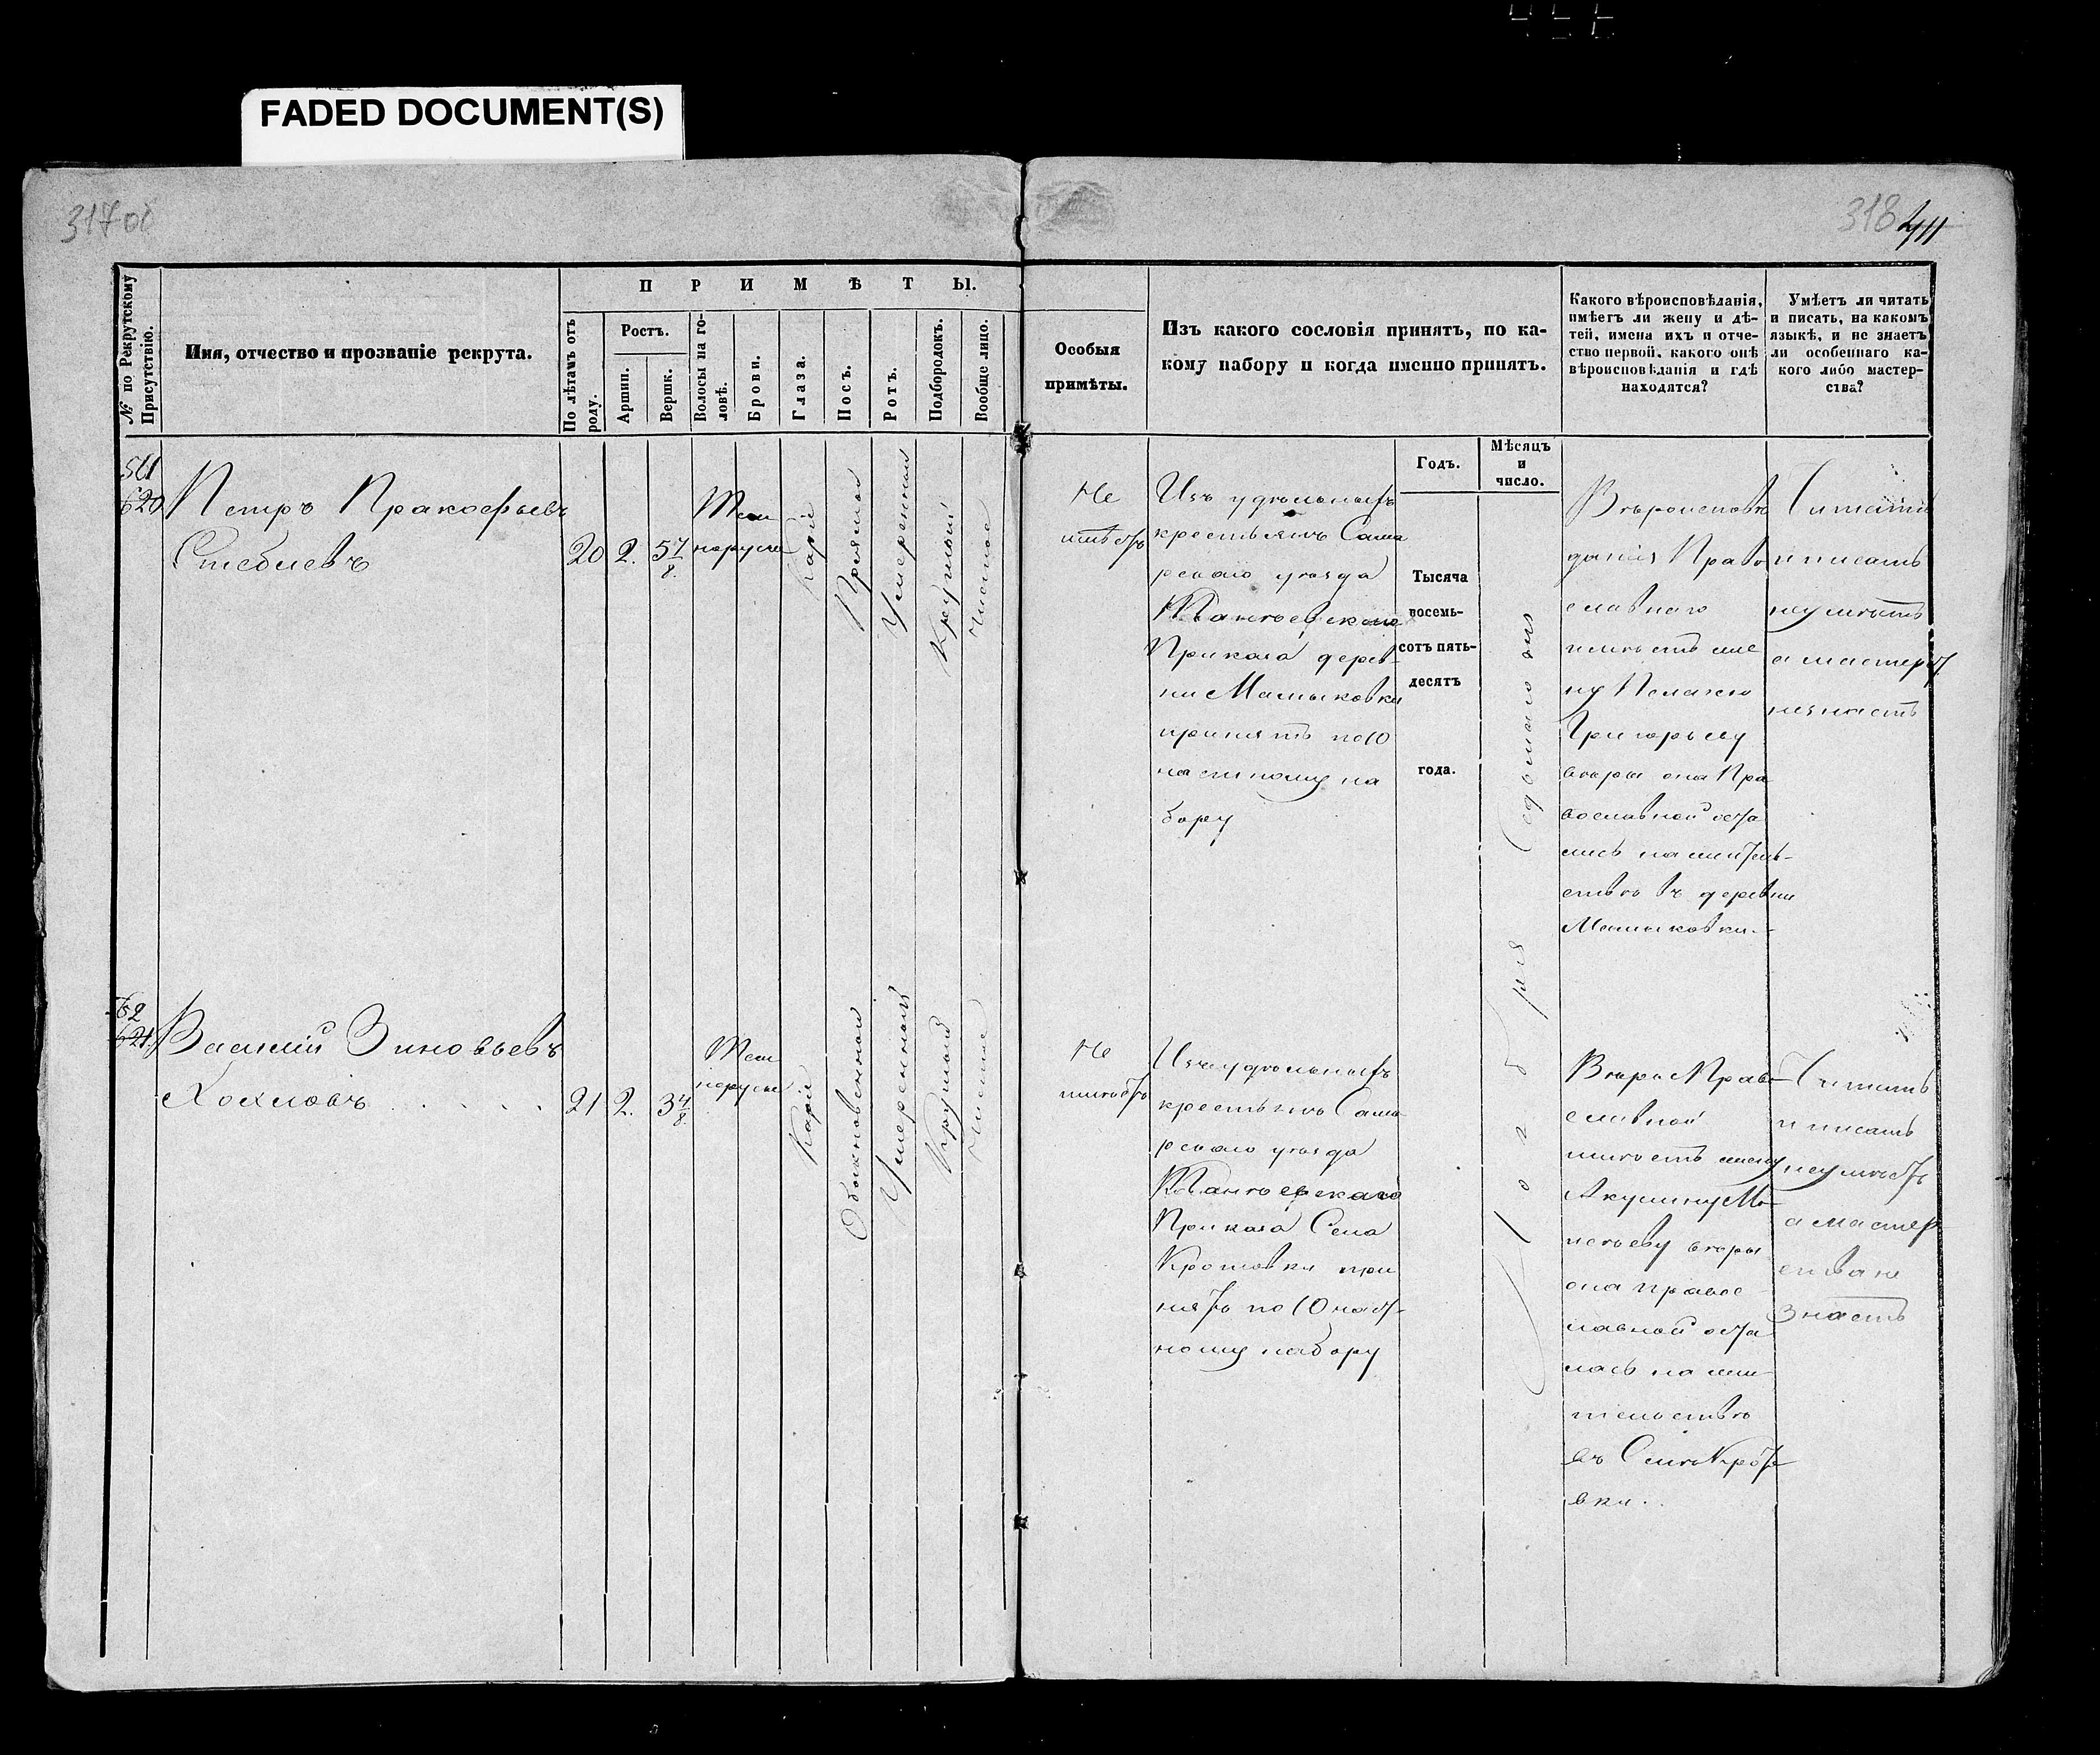 FADED DOCUMENT(S)
317об
318
411
№ по Рекрутскому Присутствію.
Имя, отчество и прозваніе рекрута.
ПРИМѢТЫ.
По лѣтамъ отъ роду.
Ростъ.
Аршин.
Вершк.
Волосы на головѣ.
Брови.
Глаза.
Носъ.
Ротъ.
Подбородокъ.
Вообще лицо.
Особыя
примѣты.
Изъ какого сословія принятъ, по ка-
кому набору и когда именно принятъ.
Какого вѣроисповѣданія,
имѣетъ ли жену и дѣ-
тей, имена ихъ и отче-
ство первой, какого онѣ
вѣроисповѣданія и гдѣ
находятся?
Умѣетъ ли читать
и писать, на какомъ
языкѣ, и не знаетъ
ли особеннаго ка-
кого либо мастер-
ства?
Годъ.
Мѣсяцъ
и
число.
Тысяча
восемь-
сотъ пять-
десятъ
года.
620
Петръ Пракофьевъ
20 2. 5 7/8.
Темнорусые
Каріе
Прямой
Умеренный
Круглый
Чистое
Не
имѣетъ
Изъ удѣльныхъ
крестьянъ Сама
рскаго уѣзда
Приказа дерев-
ни Мамыковки
принятъ по 10
частному на
бору
Седьмаго дня
Ноября
Вѣроисповѣ
данія Право
славнаго
имѣетъ же
ну Пелагею
Григорьеву
вѣры она Пра
вославной оста
лись на житель-
ствѣ въ деревни
Мамыковки.-
Читать
и писать
неумѣетъ
а мастерст
незнаетъ
62
621.
Василий Зиновьевъ
Хохловъ
21 2. 3 4/8.
Темнорусые
Каріе
Обыкновенной
Умеренный
Круглый
Чистое
Не
имѣетъ
Изъ удѣльныхъ
крестьянъ Сама
рскаго уѣзда
Приказа Села
Кротовки при
нятъ по 10 част-
ному набору
Вѣры Право
славной
имѣетъ жену
Акулину Мо
исѣеву вѣры
она правос
лавной оста
лась на жи
тельствѣ
въ Селѣ Крото
вки.
Читать
и писать
неумѣетъ
а мастер
ства не
знаетъ